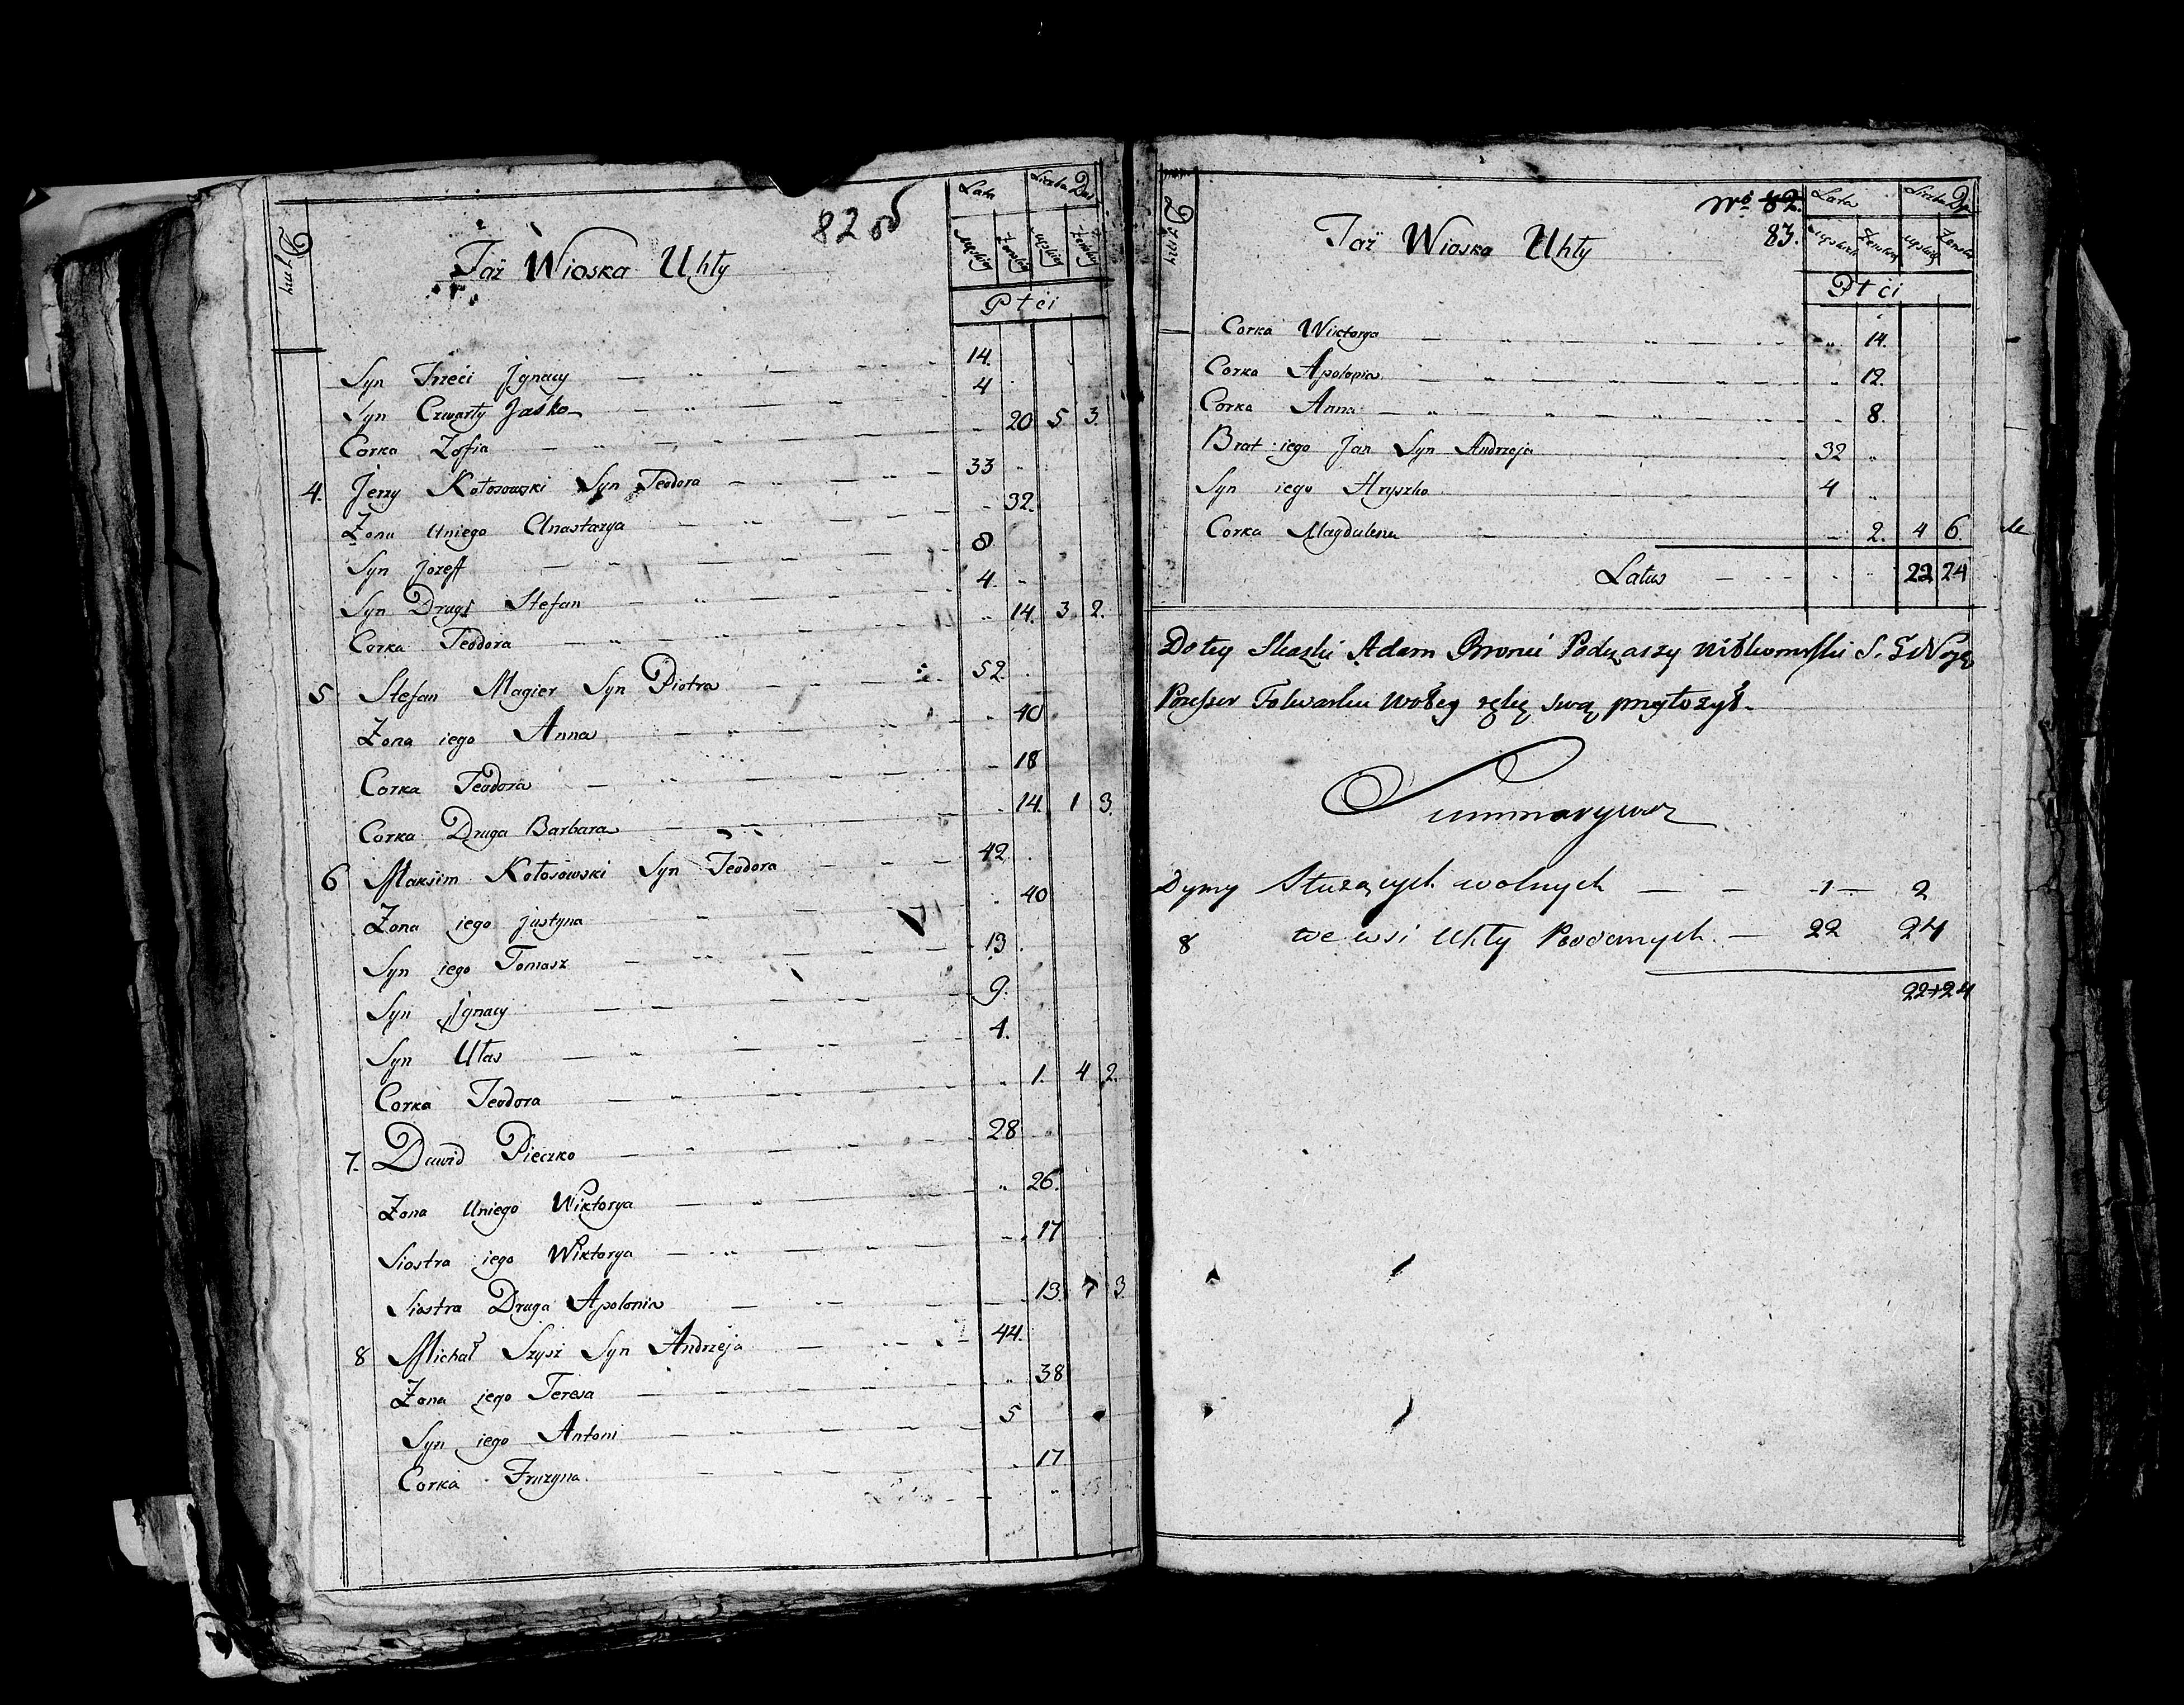 82 об
Taż Wioska Uhły
Dymy
Lata
Liczba Dusz
Męskiey
Żenskiey
Męskiey
Żenskiey
Płci
Syn Trzeci Jgnacy — 14.
Syn Czwarty Jaśko — 4
Corka Zofia — 20 5 3.
4. Jerzy Kołosowski Syn Teodora — 33
Żona Uniego Anastazya — 32.
Syn Jozeff — 8
Syn Drugi Stefan — 4.
Corka Teodora — 14. 3 2.
5 Stefan Magier Syn Piotra — 52.
Żona iego Anna — 40
Corka Teodora — 18
Corka Druga Barbara — 14. 1 3.
6 Maksim Kołosowski Syn Teodora — 42
Żona iego Justyna — 40
Syn iego Tomasz — 13
Syn Jgnacy — 9.
Syn Ułas — 4.
Corka Teodora — 1. 4 2.
7. Dawid Pieczko — 28
Żona Uniego Wiktorya — 26.
Siostra iego Wiktorya — 17
Siostra Druga Apolonia — 13. 1 3.
8 Michał Szysz Syn Andrzeja — 44.
Żona iego Teresa — 38
Syn iego Antoni — 5
Corka Fruzyna — 17
No 82.
83.
Taż Wioska Uhły
Dymy
Lata
Liczba Du
Męskiey
Żenskiey
Męskiey
Żenskiey
Płci
Corka Wiktorya — 14.
Corka Apolonia — 12.
Corka Anna — 8.
Brat iego Jan Syn Andrzeja 32
Syn iego Hryszko 4
Corka Magdalena — 2. 4 6.
Latus — 22 24
Do tey Skazki Adam Podczaszy
Possessor Folwarku rękę swą przyłożył.
Summaryusz
Dymy Służących wolnych — — 1 — 2
8 we wsi Uhły Poddanych. — 22 24
22+24